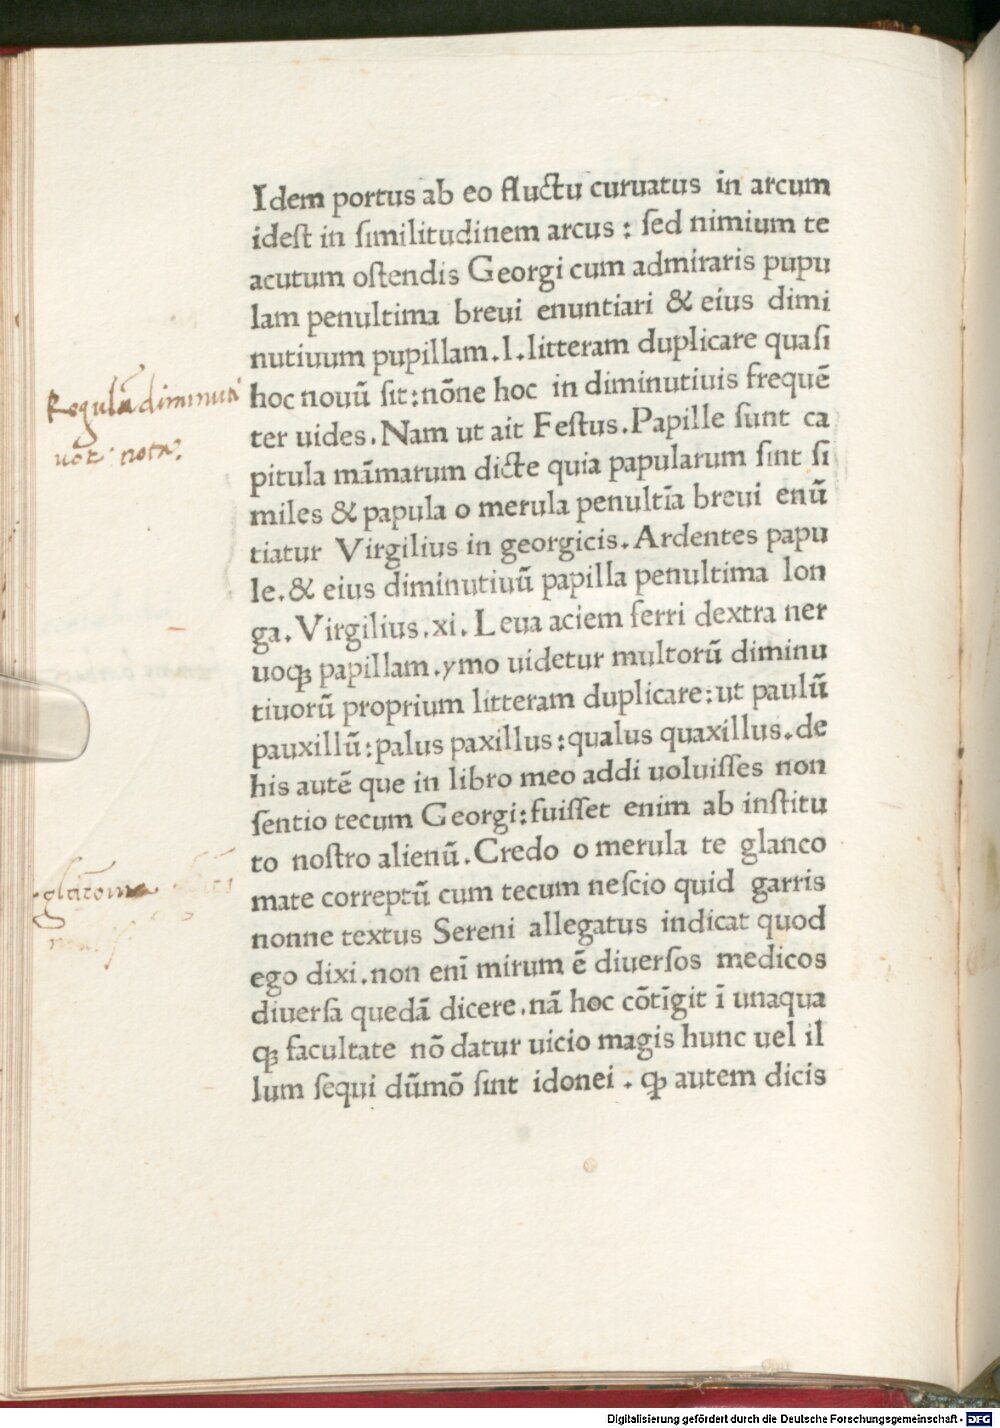 Idem portus ab eo fluctu curuatus in arcum
idest in ſimilitudinem arcus : ſed nimium te
acutum oſtendis Georgi cum admiraris pupu
lam penultima breui enuntiari & eius dimi
nutiuum pupillam.l.litteram duplicare quaſi
hoc nouū ſit:nōne hoc in diminutiuis frequē
ter uides.Nam ut ait Feſtus.Papille ſunt ca
pitula māmarum dicte quia papularum ſint ſi
miles & papula o merula penultīa breui enū
tiatur Virgilius in georgicis.Ardentes papu
le.& eius diminutiuū papilla penultima lon
ga.Virgilius.xi.Leua aciem ferri dextra ner
uoqꝫ papillam.ymo uidetur multorū diminu
tiuorū proprium litteram duplicare:ut paulū
pauxillū:palus paxillus:qualus quaxillus.de
his autē que in libro meo addi uoluiſſes non
ſentio tecum Georgi:fuiſſet enim ab inſtitu
to noſtro alienū.Credo o merula te glanco
mate correptū cum tecum neſcio quid garris
nonne textus Sereni allegatus indicat quod
ego dixi.non enī mirum ē diuerſos medicos
diuerſa quedā dicere.nā hoc cōtīgit ī unaqua
qꝫ facultate nō datur uicio magis hunc uel il
lum ſequi dūmō ſint idonei . ꝙ autem dicis
Regulā diminuti
uor nota.
Digitalisierung gefördert durch die Deutsche Forschungsgemeinschaft - DFG